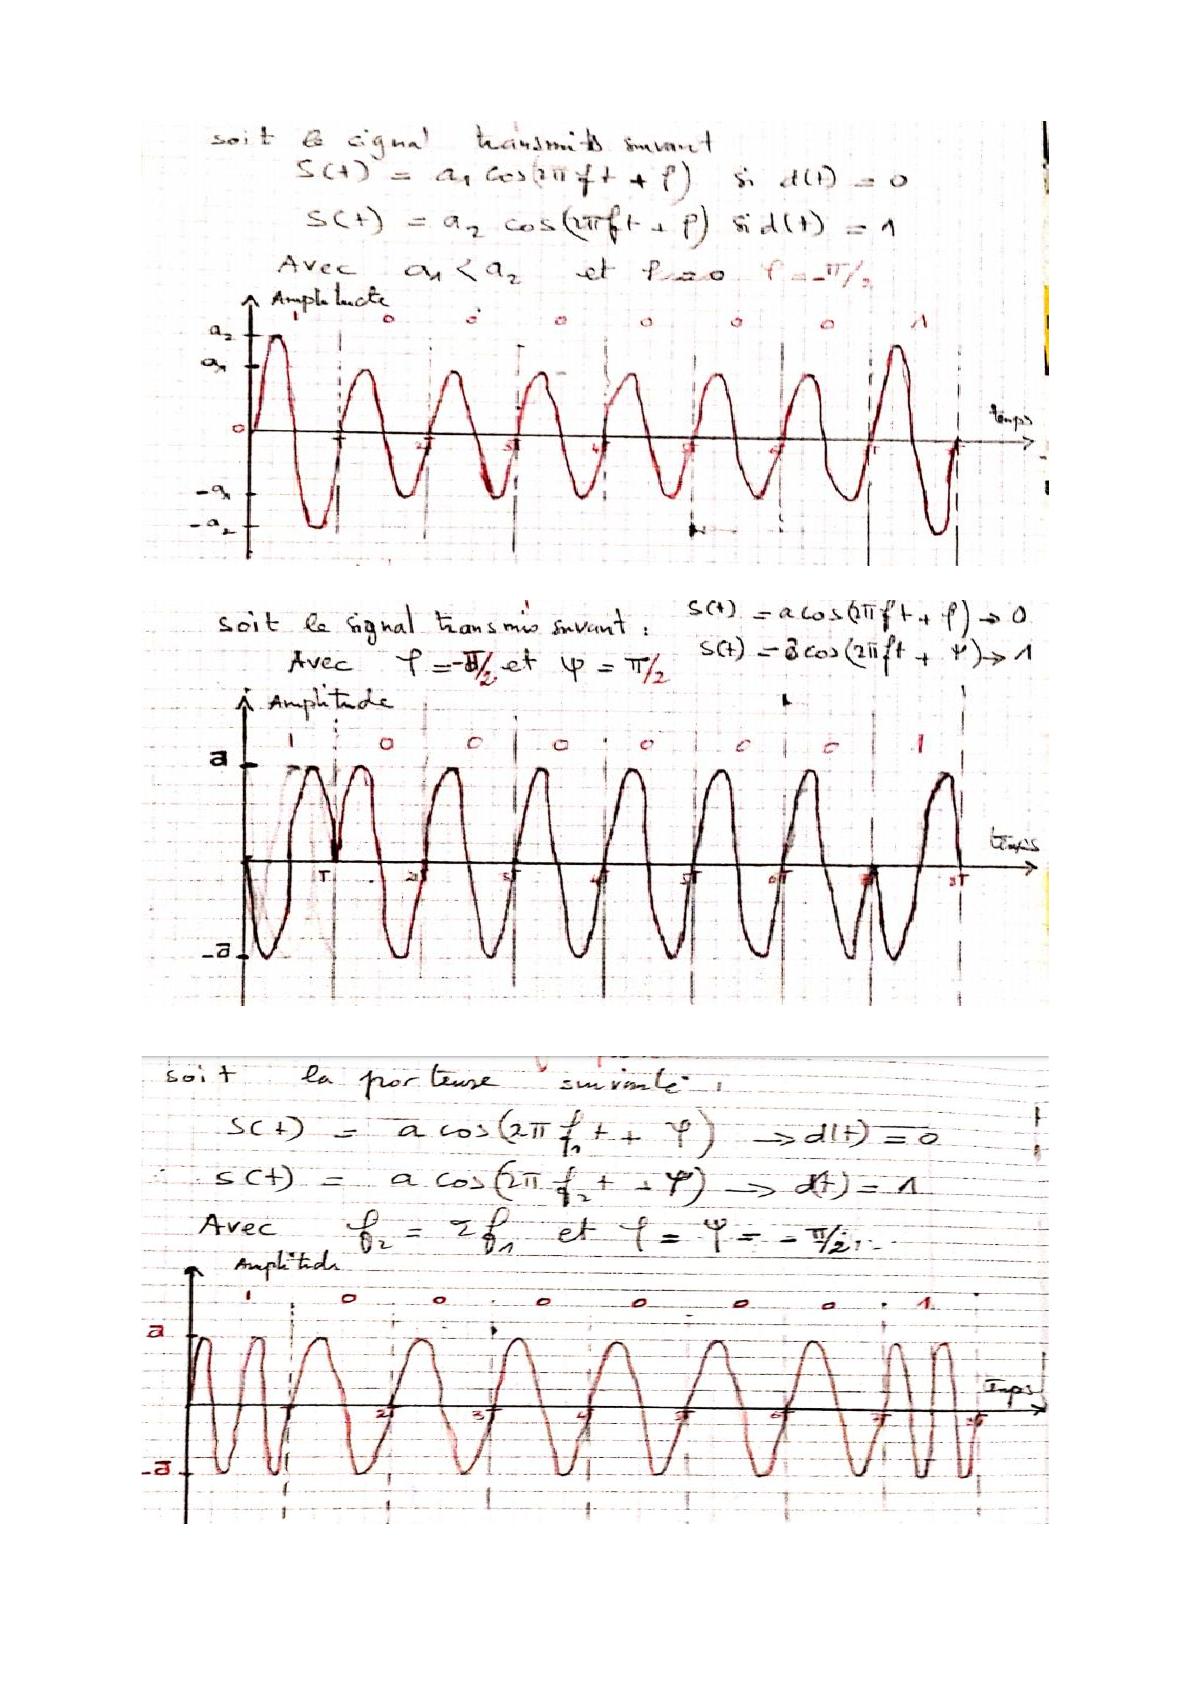 soit le signal transmis suivant
S(t) = a₁ cos(2πft + φ) si d(t) = 0
S(t) = a₂ cos(2πft + φ) si d(t) = 1
Avec a₁ < a₂ et φ = 0 φ = -π/2
Amplitude
1 0 0 0 0 0 0 1
a₂
a₁
0
temps
T 2T 3T 4T 5T 6T
-a₁
-a₂
soit le signal transmis suivant :
S(t) = a cos(2πft + φ) → 0
S(t) = a cos(2πft + ψ) → 1
Avec φ = -π/2 et ψ = π/2
Amplitude
1 0 0 0 0 0 0 1
a
temps
T 2T 3T 4T 5T 6T 8T
-a
soit la porteuse suivante :
S(t) = a cos(2π f₁ t + φ) → d(t) = 0
S(t) = a cos(2π f₂ t + ψ) → d(t) = 1
Avec f₂ = 2f₁ et φ = ψ = -π/2
Amplitude
1 0 0 0 0 0 0 1
a
Temps
2T 3T 4T 5T 6T 7T 8T
-a